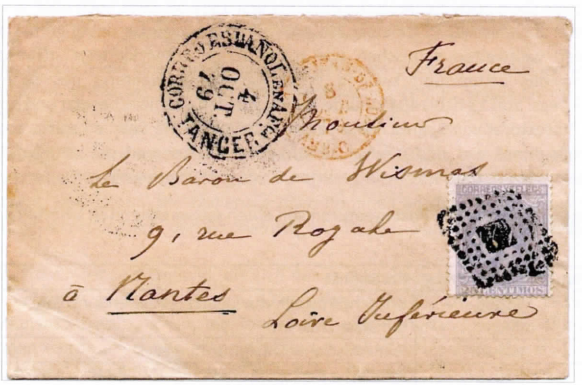 CORREO ESPAÑOL EN MARR.
4
OCT.
79
TANGER
France
Monsieur
Le Baron de Wismes
9, rue Royale
à Nantes
Loire Inférieure
CORREOS Y TELEG
CENTIMOS